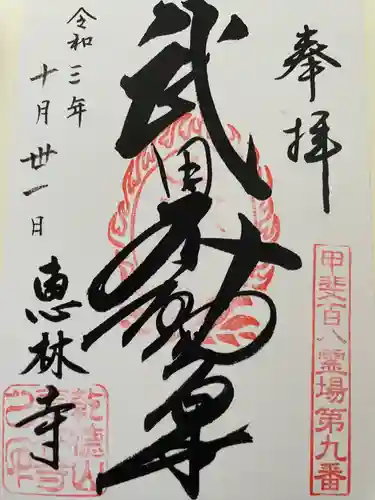 奉拝
甲斐百八霊場第九番
武田不動尊
令和三年
十月丗一日
恵林寺